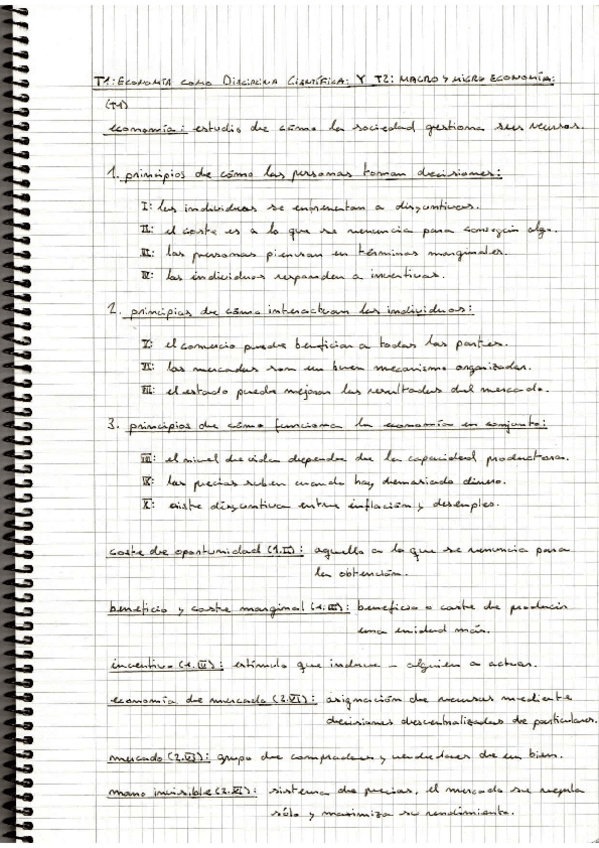 T1: ECONOMÍA COMO DISCIPLINA CIENTÍFICA: Y T2: MACRO Y MICRO ECONOMÍA:
(T1)
economía: estudio de cómo la sociedad gestiona sus recursos.
1. principios de cómo las personas toman decisiones:
I: los individuos se enfrentan a disyuntivas.
II: el coste es a lo que se renuncia para conseguir algo.
III: las personas piensan en términos marginales.
IV: los individuos responden a incentivos.
2. principios de cómo interactúan los individuos:
V: el comercio puede beneficiar a todas las partes.
VI: los mercados son un buen mecanismo organizador.
VII: el estado puede mejorar los resultados del mercado.
3. principios de cómo funciona la economía en conjunto:
VIII: el nivel de vida depende de la capacidad productora.
IX: los precios suben cuando hay demasiado dinero.
X: existe disyuntiva entre inflación y desempleo.
coste de oportunidad (1.II): aquello a lo que se renuncia para
la obtención.
beneficio y coste marginal (1.III): beneficio o coste de producir
una unidad más.
incentivo (1.IV): estímulo que induce a alguien a actuar.
economía de mercado (2.VI): asignación de recursos mediante
decisiones descentralizadas de particulares.
mercado (2.VI): grupo de compradores y vendedores de un bien.
mano invisible (2.VI): sistema de precios, el mercado se regula
sólo y maximiza su rendimiento.